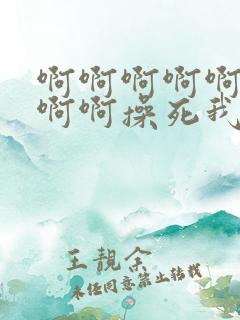 啊啊啊啊啊
啊啊操死我
王靓余
未经同意禁止转载